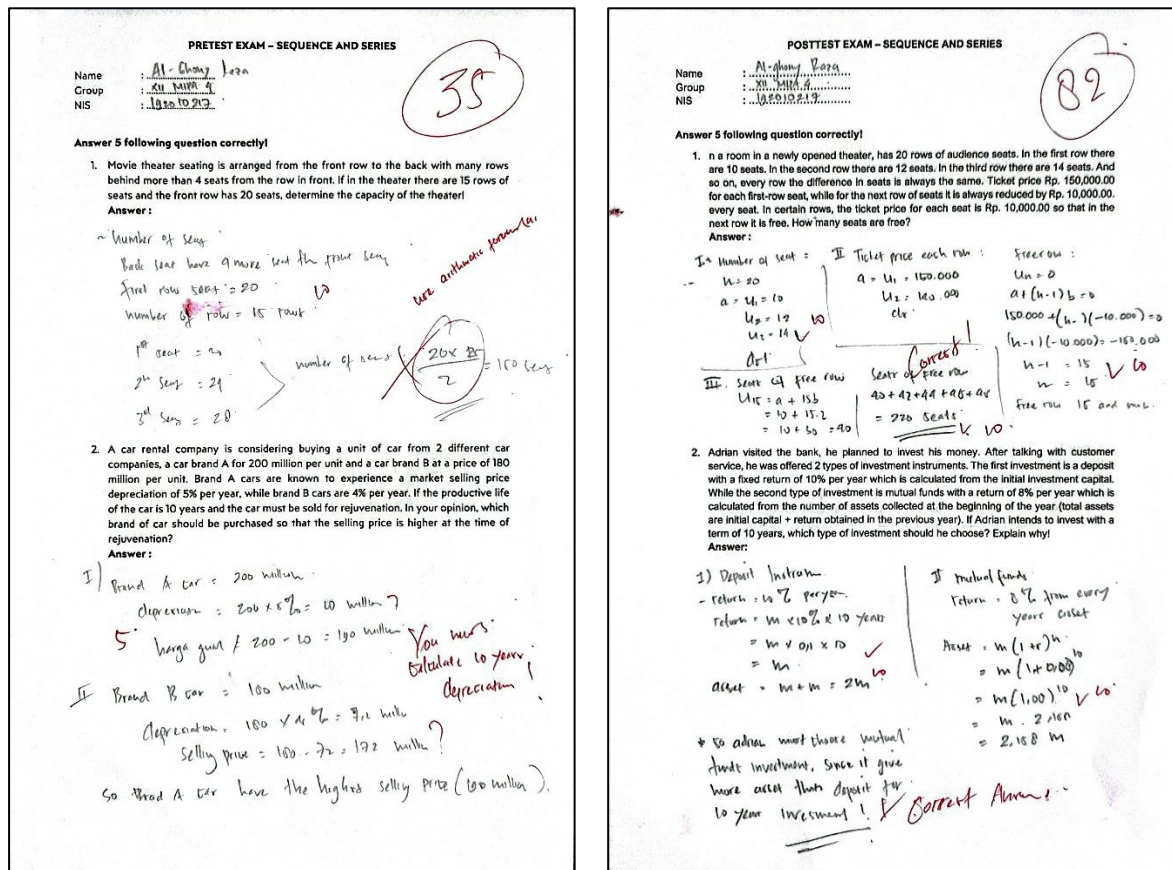 PRETEST EXAM – SEQUENCE AND SERIES
Name : Al-Ghony
Group : XII MIPA 4
NIS :
35
Answer 5 following question correctly!
1. Movie theater seating is arranged from the front row to the back with many rows
behind more than 4 seats from the row in front. If in the theater there are 15 rows of
seats and the front row has 20 seats, determine the capacity of the theater!
Answer :
~ Number of
Back seat have 4 more seat front
first row seat = 20
10
number of row = 15 rows
use arithmetic formula!
1st seat = 20
2nd = 24
3rd = 28
number of
20 x 15
2
= 150
2. A car rental company is considering buying a unit of car from 2 different car
companies, a car brand A for 200 million per unit and a car brand B at a price of 180
million per unit. Brand A cars are known to experience a market selling price
depreciation of 5% per year, while brand B cars are 4% per year. If the productive life
of the car is 10 years and the car must be sold for rejuvenation. In your opinion, which
brand of car should be purchased so that the selling price is higher at the time of
rejuvenation?
Answer :
I) Brand A car = 200 million
= 200 x 5% = 10 million ?
5
harga 200 - 10 = 190 million
You must
calculate 10 years
depreciation!
II Brand B car = 180 million
depreciation = 180 x 4% = 7,2
selling price = 180 - 7,2 = 172 ?
So Brad A car have the highes selly price
POSTTEST EXAM – SEQUENCE AND SERIES
Name : Al-ghony Raza
Group : XII MIPA 4
NIS :
82
Answer 5 following question correctly!
1. n a room in a newly opened theater, has 20 rows of audience seats. In the first row there
are 10 seats. In the second row there are 12 seats. In the third row there are 14 seats. And
so on, every row the difference in seats is always the same. Ticket price Rp. 150,000.00
for each first-row seat, while for the next row of seats it is always reduced by Rp. 10,000.00.
every seat. In certain rows, the ticket price for each seat is Rp. 10,000.00 so that in the
next row it is free. How many seats are free?
Answer :
Number of seat =
n = 20
a = U1 = 10
U2 = 12
10
= 14
II Ticket price each row :
a = U1 = 150.000
U2 = 140.000
Free row :
Un = 0
a + (n-1) b = 0
150.000 + (n- )(-10.000) = 0
(n-1)(-10.000) = -150.000
n-1 = 15
10
Free row
III. Seat of free row
= a + 15b
= 10 + 15.2
= 10 + 30 = 40
Seats of free row
Correct!
40 + 42 + 44 + 46 + 48
= 220 seats
10
2. Adrian visited the bank, he planned to invest his money. After talking with customer
service, he was offered 2 types of investment instruments. The first investment is a deposit
with a fixed return of 10% per year which is calculated from the initial investment capital.
While the second type of investment is mutual funds with a return of 8% per year which is
calculated from the number of assets collected at the beginning of the year (total assets
are initial capital + return obtained in the previous year). If Adrian intends to invest with a
term of 10 years, which type of investment should he choose? Explain why!
Answer:
1) Deposit Instrum
- return = 10% per year
return = M x 10% x 10 years
= M x 0,1 x 10
= M
10
asset = M + M = 2M
II mutual funds
return = 8% from every
years asset
Asset = M (1+r)n
= M
10
= M
= 2,158 M
* So adrian must choose mutual
funds investment, since it give
more asset than deposit for
10 year invesment!
Correct